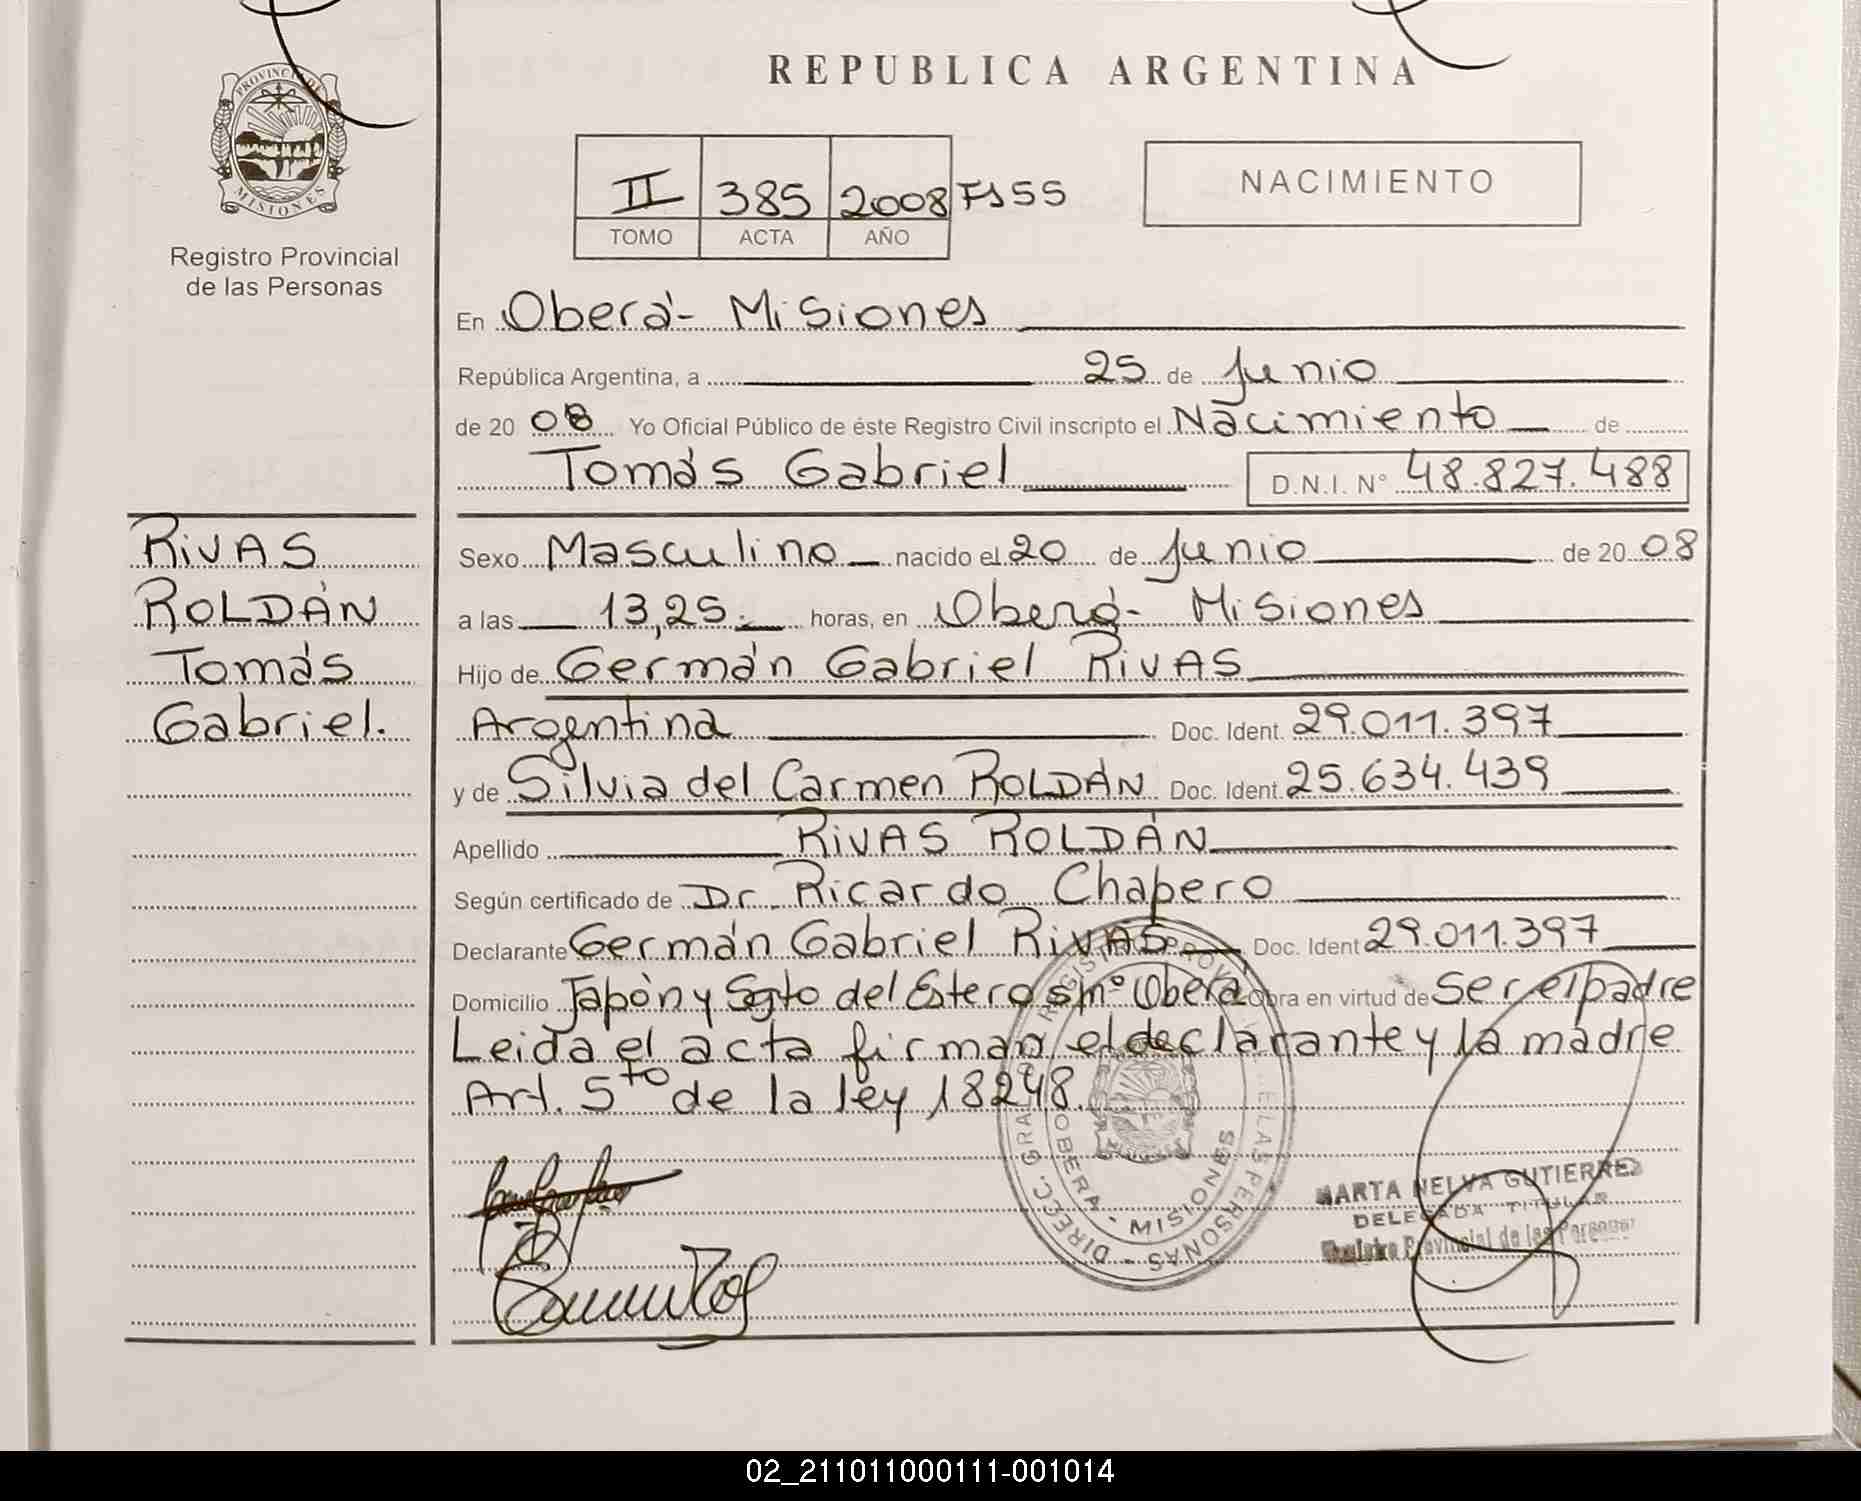 REPUBLICA ARGENTINA
PROVINCIA DE
MISIONES
Registro Provincial
de las Personas
II 385 2008 Fº 55
TOMO ACTA AÑO
NACIMIENTO
En Oberá - Misiones
República Argentina, a 25 de Junio
de 20 08 Yo Oficial Público de éste Registro Civil inscripto el Nacimiento de
Tomás Gabriel D.N.I. N° 48.827.488
RIVAS
ROLDÁN
Tomás
Gabriel.
Sexo Masculino nacido el 20 de Junio de 20 08
a las 13,25 horas, en Oberá - Misiones
Hijo de Germán Gabriel RIVAS
Argentina Doc. Ident. 29.011.397
y de Silvia del Carmen ROLDÁN Doc. Ident. 25.634.439
Apellido RIVAS ROLDÁN
Según certificado de Dr. Ricardo Chapero
Declarante Germán Gabriel RIVAS Doc. Ident 29.011.397
Domicilio Japón y Sgto del Estero s/nº Oberá Obra en virtud de Ser el padre
Leida el acta firman el declarante y la madre
Art. 5to de la ley 18248.
OBERA - MISIONES
MARTA NELVA GUTIERREZ
DELEGADA TITULAR
Registro Provincial de las Personas
02_211011000111-001014